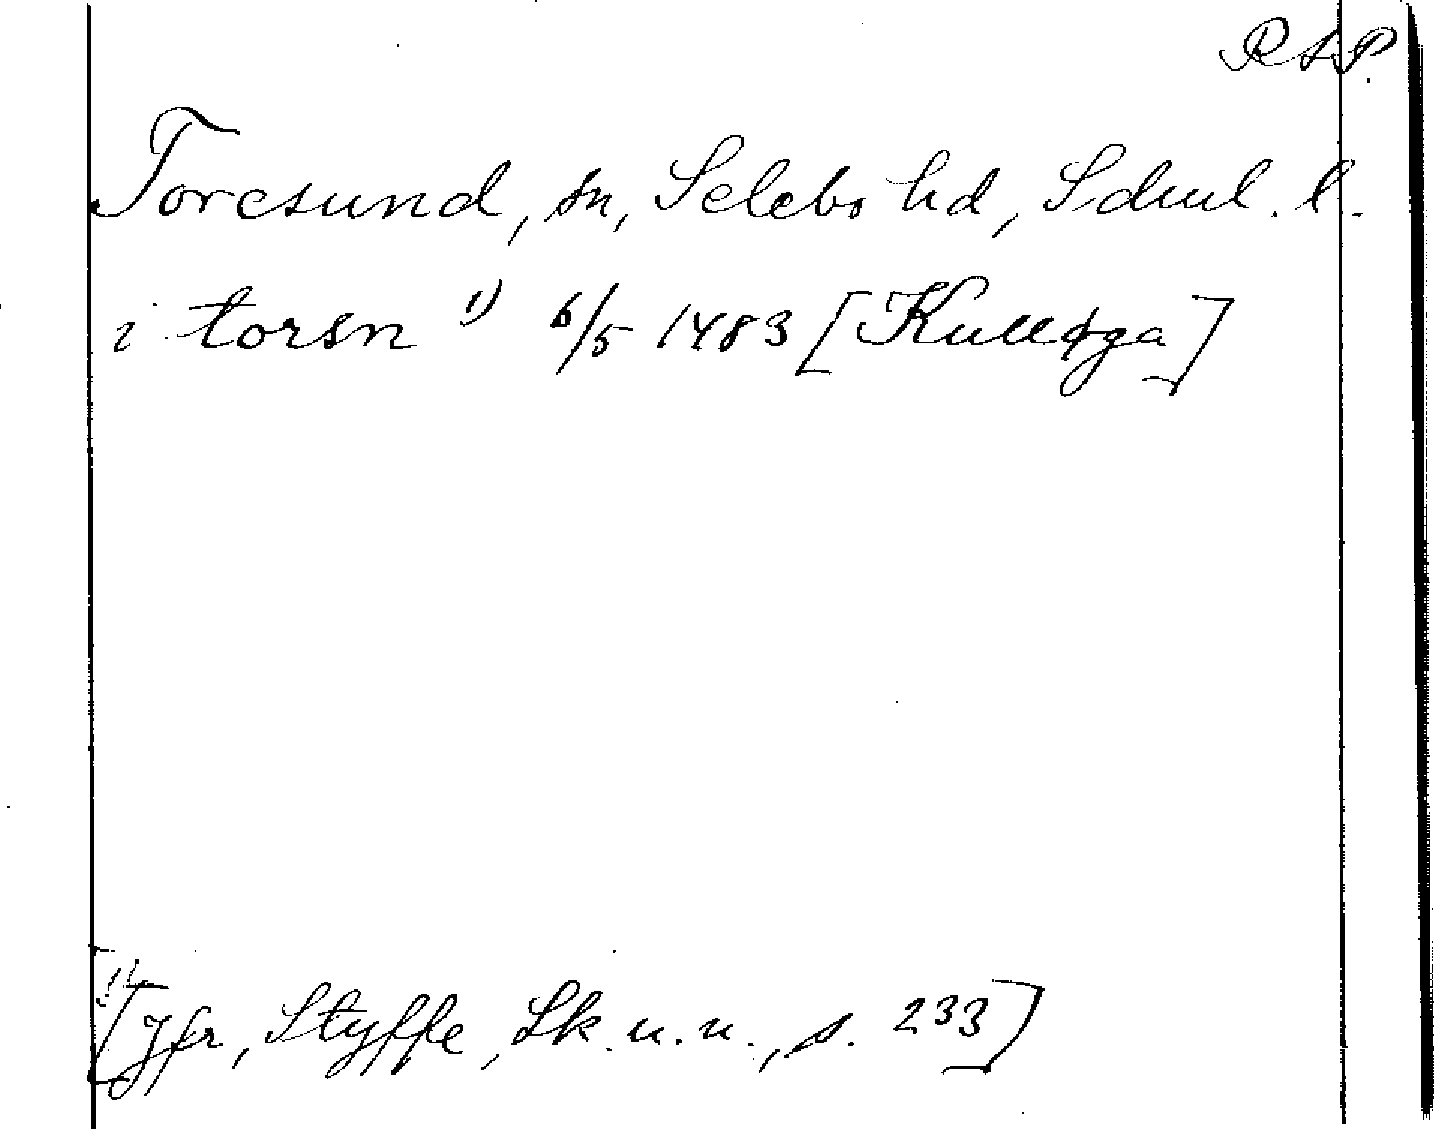 RAP.
Toresund, sn, Selebo hd, Sdml. l.
i torsn ¹⁾ 6/5 1483 [Kulløga]
¹⁾ [Jfr, Styffe, Sk. u. u., s. 233]